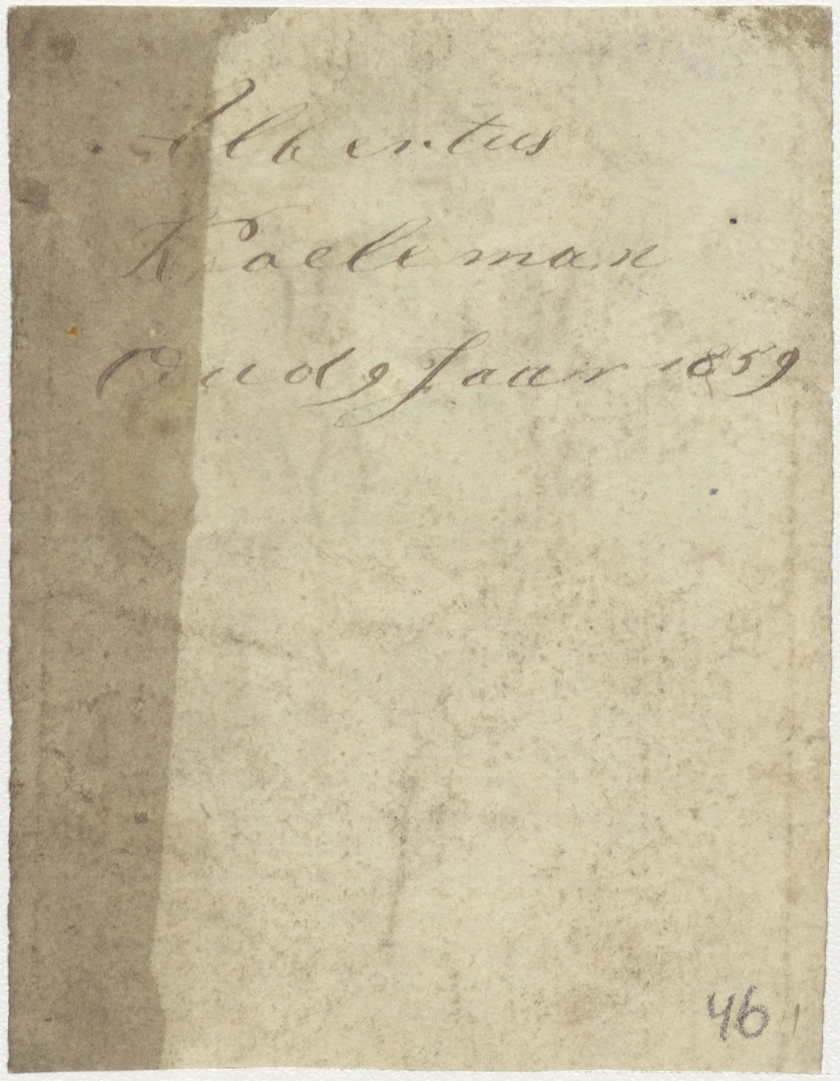 Albertus
Kroeleman
Oud 9 Jaar 1859
46